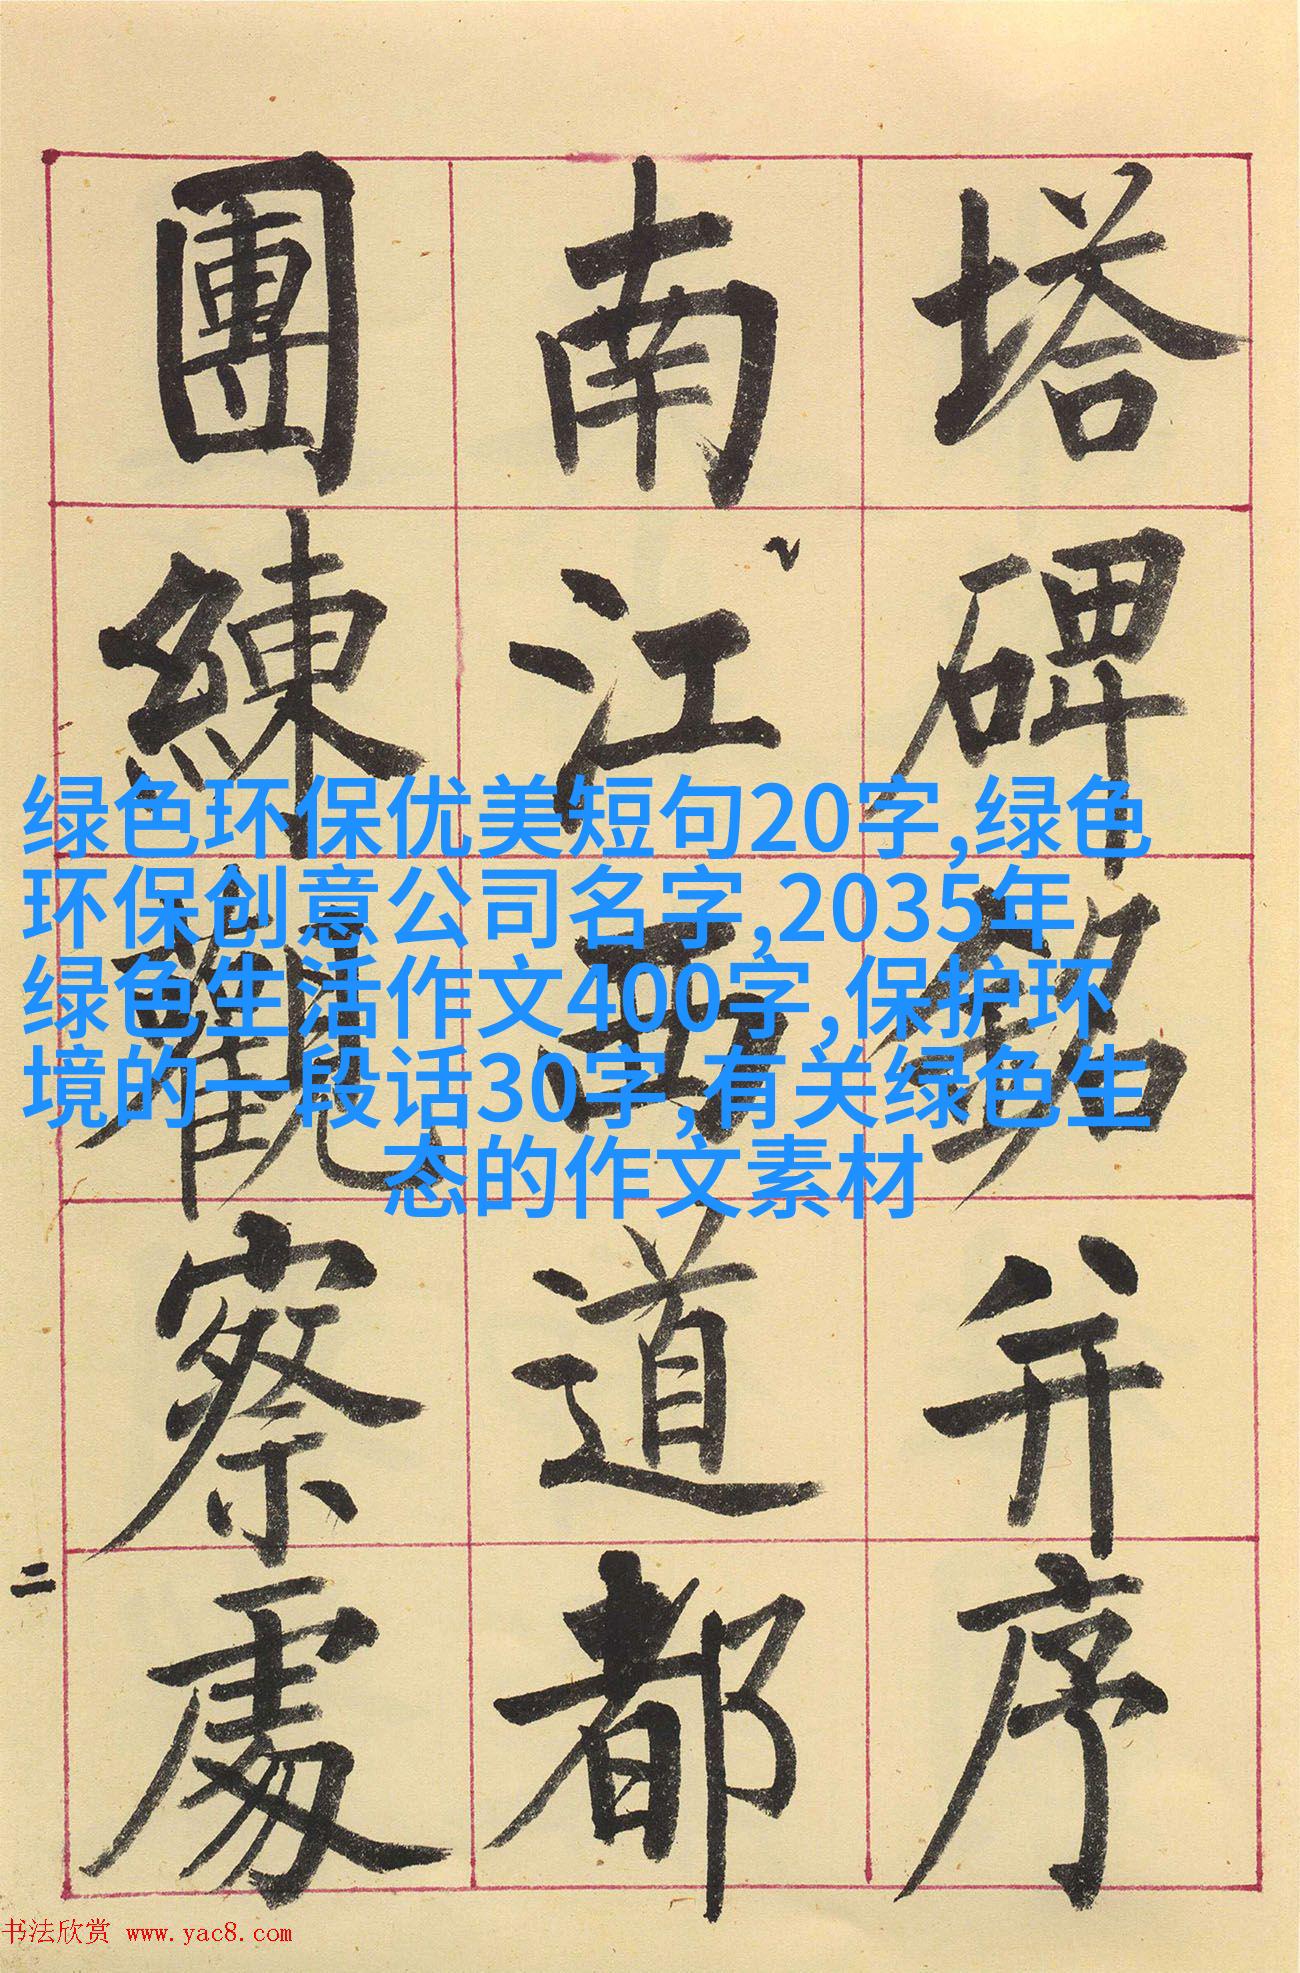 塔碑銘并序
南江西道都
團練觀察處
二
绿色环保优美短句20字,绿色
环保创意公司名字,2035年
绿色生活作文400字,保护环
境的一段话30字,有关绿色生
态的作文素材
书法欣赏 www.yac8.com